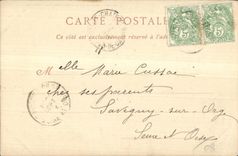 CARTE POSTALE
Ce côté est exclusivement réservé à l'adresse
5 5
Melle Marie Cussac
chez ses parents
Savigny-sur-Org
Seine et Oise